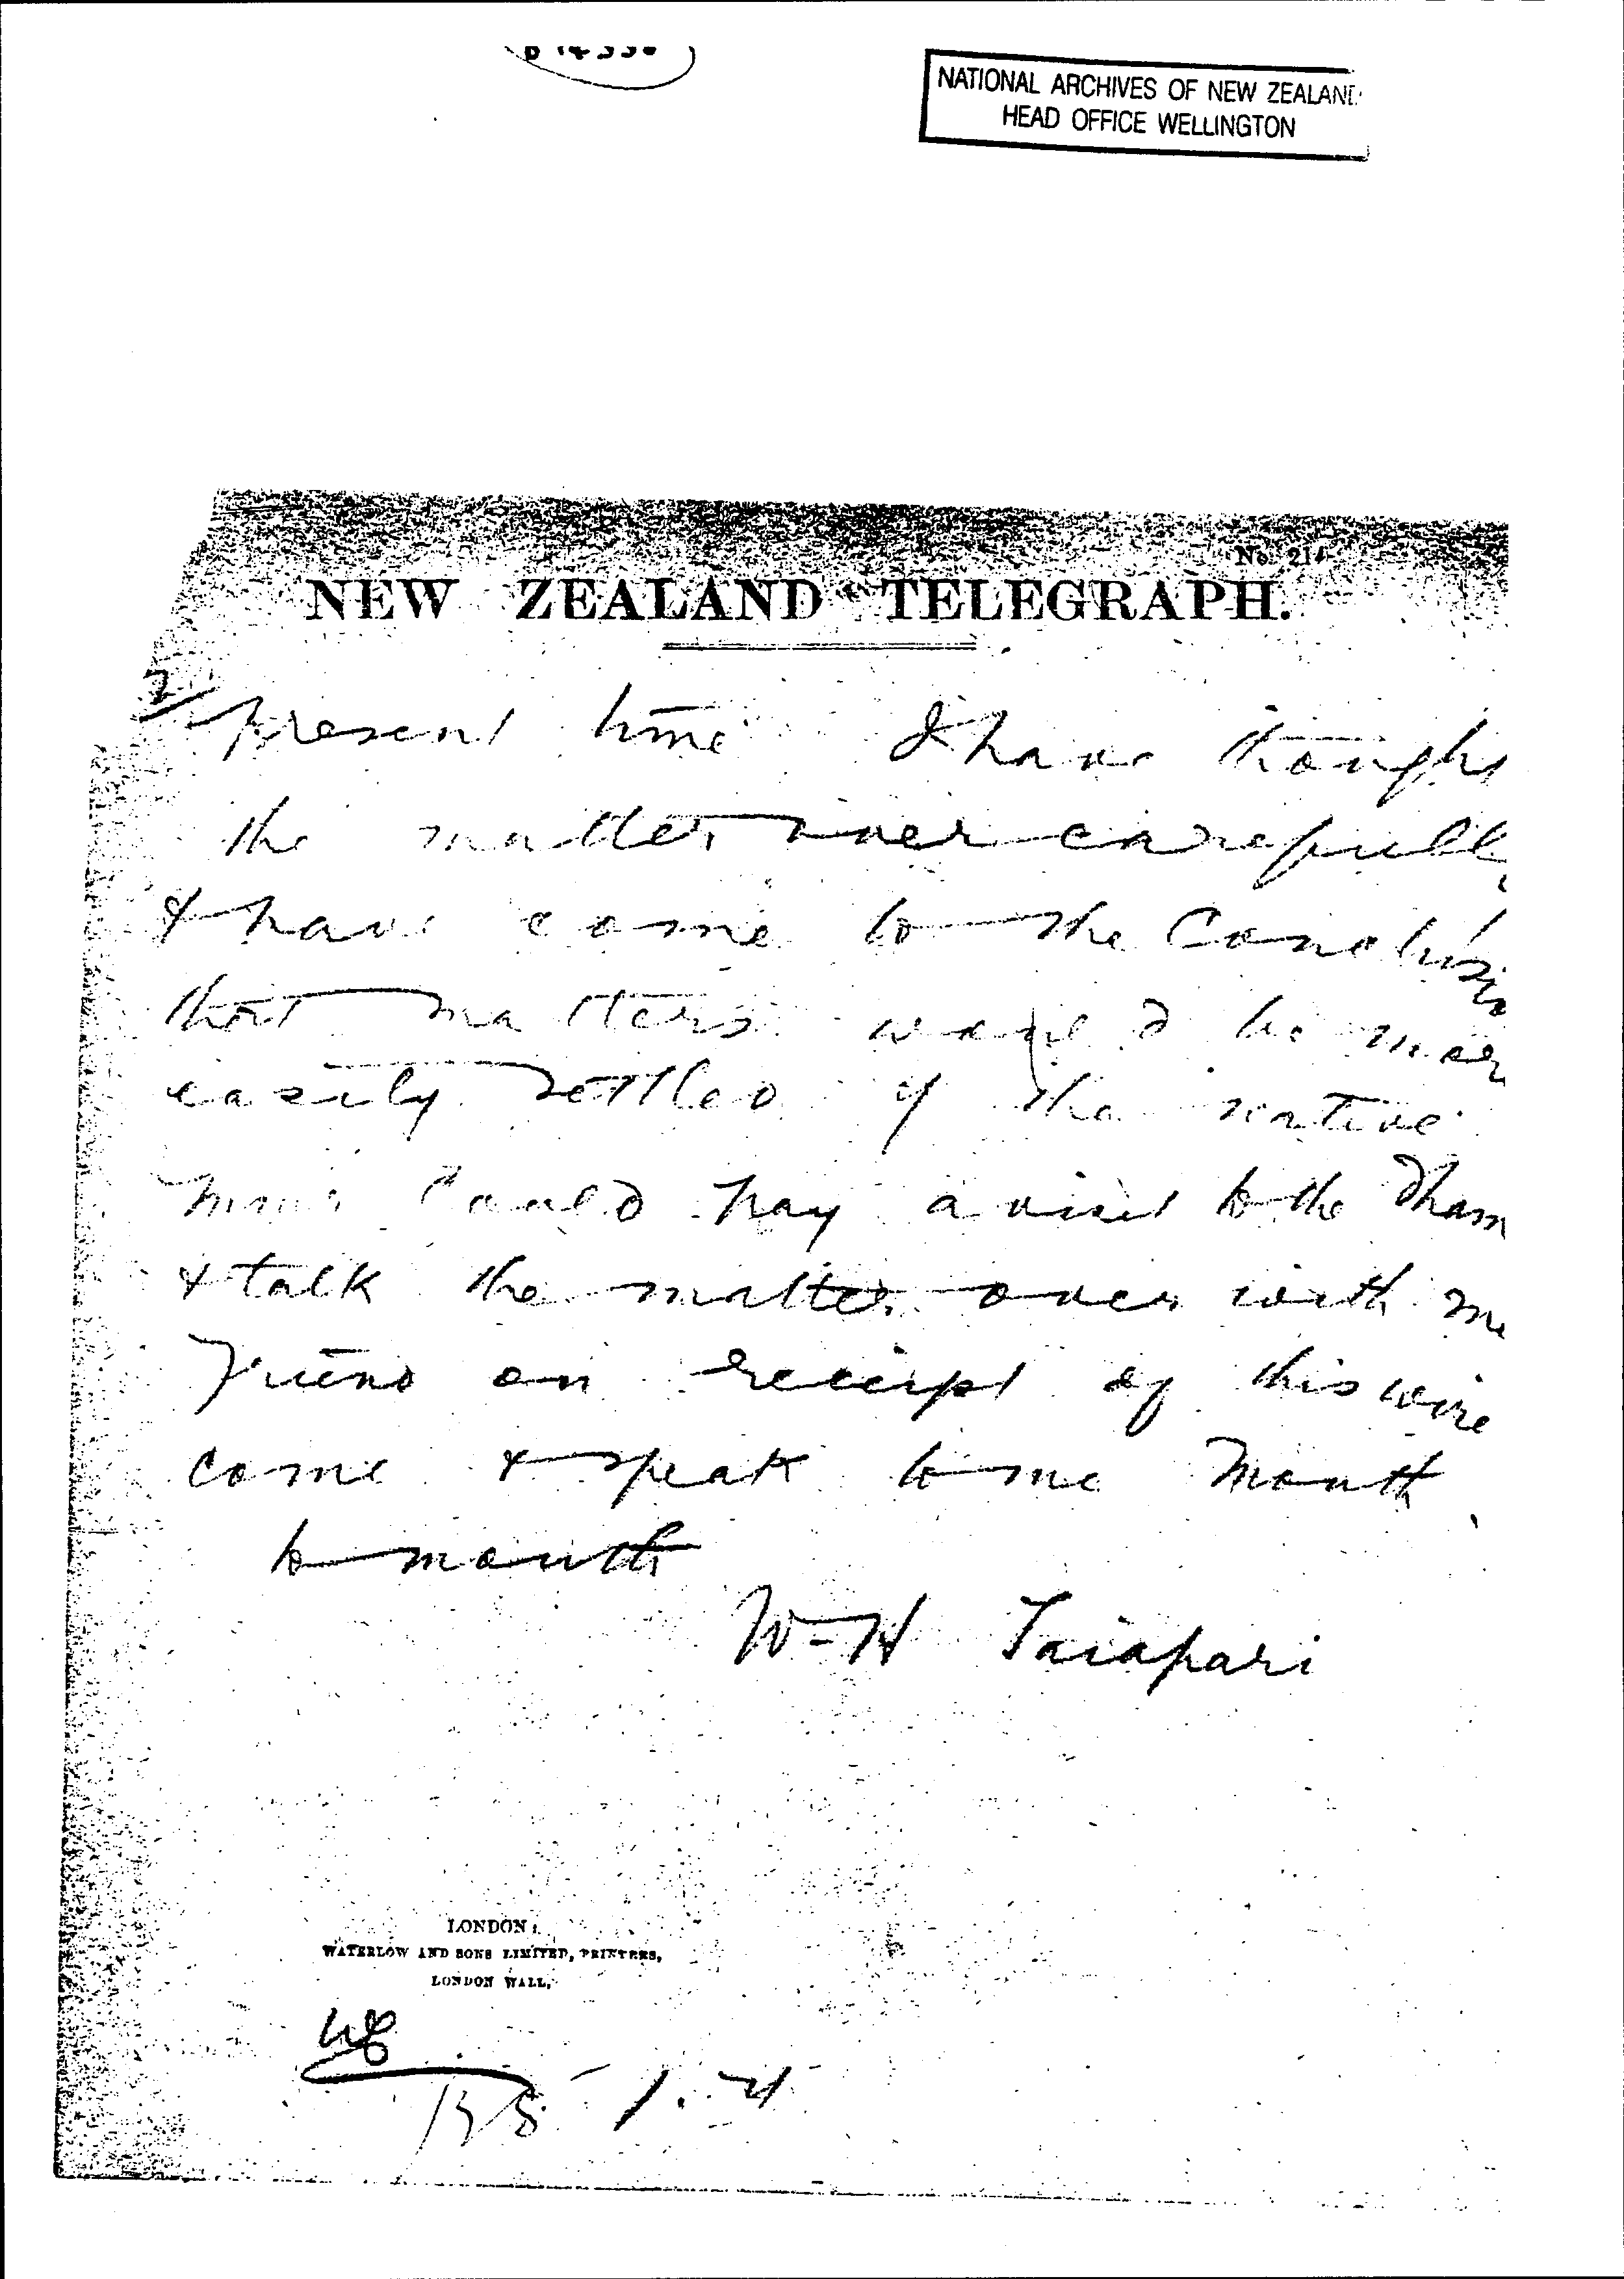 NATIONAL ARCHIVES OF NEW ZEALAND
HEAD OFFICE WELLINGTON
No. 214
NEW ZEALAND TELEGRAPH.
2/
present time I have thought
the matter over carefully
& have come to the Conclusion
that matters would be more
easily settled if the native
Minr Could pay a visit to the Tham
& talk the matter over with me
Friend on receipt of this wire
come & speak to me Mouth
to mouth
W-H Taiapari
LONDON:
WATERLOW AND SONS LIMITED, PRINTERS,
LONDON WALL.